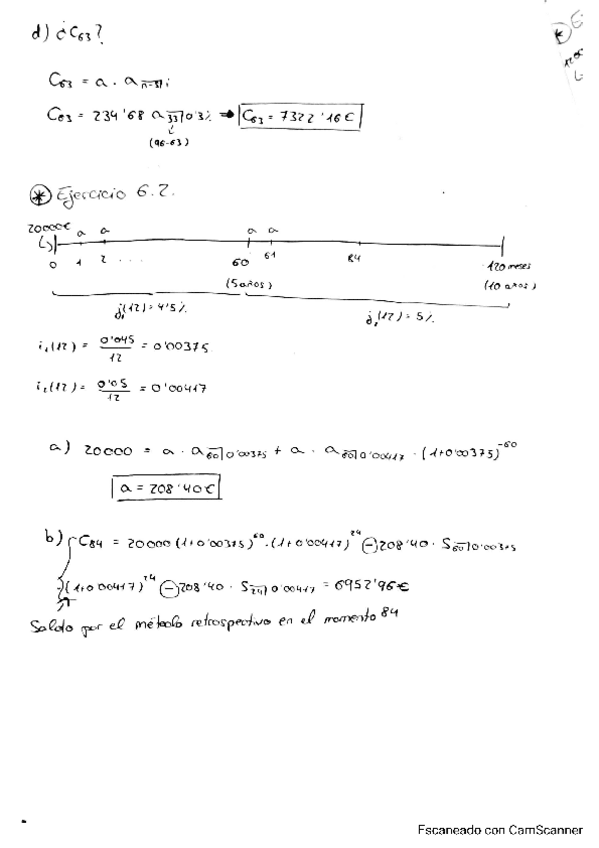 d) ¿C63?
C63 = a · a n-37 i
C63 = 234'68 a 33 0'3% → C63 = 7322'16€
(96-63)
* Ejercicio 6.2.
20000€ a a a a
0 1 2 . . . 60 61 84 120 meses
(5 años) (10 años)
j1(12) = 4'5% j2(12) = 5%
i1(12) = 0'045 / 12 = 0'00375
i2(12) = 0'05 / 12 = 0'00417
a) 20000 = a · a 60 0'00375 + a · a 60 0'00417 · (1+0'00375)^-60
a = 208'40€
b) C84 = 20000 (1+0'00375)^60 · (1+0'00417)^24 - 208'40 · S 60 0'00375
· (1+0'00417)^24 - 208'40 · S 24 0'00417 = 6952'96€
Saldo por el método retrospectivo en el momento 84
Escaneado con CamScanner